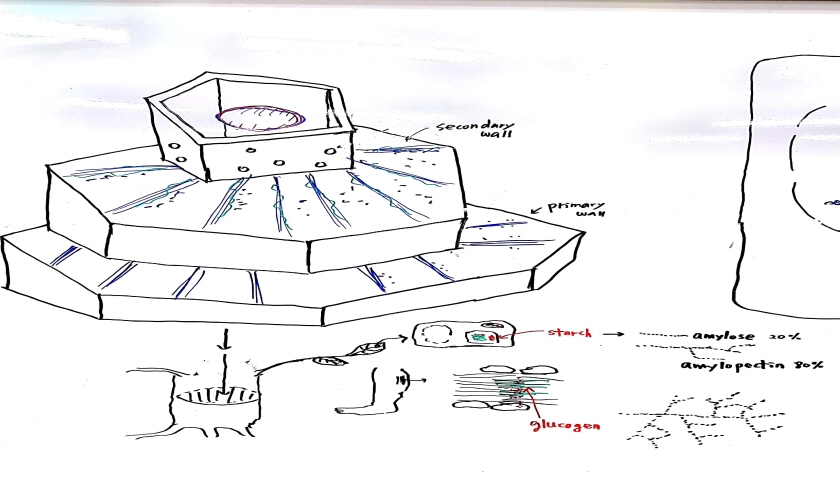 secondary
wall
primary
wall
starch
amylose 20%
amylopectin 80%
glucogen